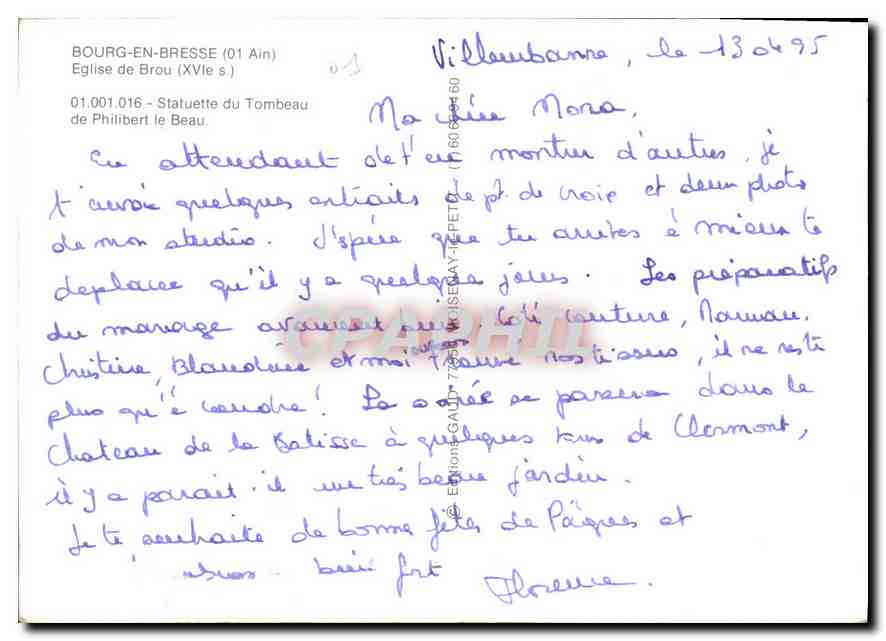 BOURG-EN-BRESSE (01 Ain)
Eglise de Brou (XVIe s.)
01.001.016 - Statuette du Tombeau
de Philibert le Beau.
01
Villeurbanne, le 13 04 95
Ma chère Mona,
En attendant de t'en montrer d'autres, je
t'envoie quelques extraits de pt. de croix et deux photos
de mon studio. J'espère que tu arrives à mieux te
deplacer qu'il y a quelques jours. Les préparatifs
du mariage avancent bien. Côté couture, Maman,
Christine, Blandine et moi avons trouvé nos tissus, il ne reste
plus qu'à coudre! La soirée se passera dans le
Chateau de la Batisse à quelques kms de Clermont,
il y a parait-il un très beau jardin.
Je te souhaite de bonnes fêtes de Pâques et
bien fort
Florence.
© Editions GAUD 77950 MOISENAY-le-PETIT - (1) 60 66 94 60
CPAPHIL